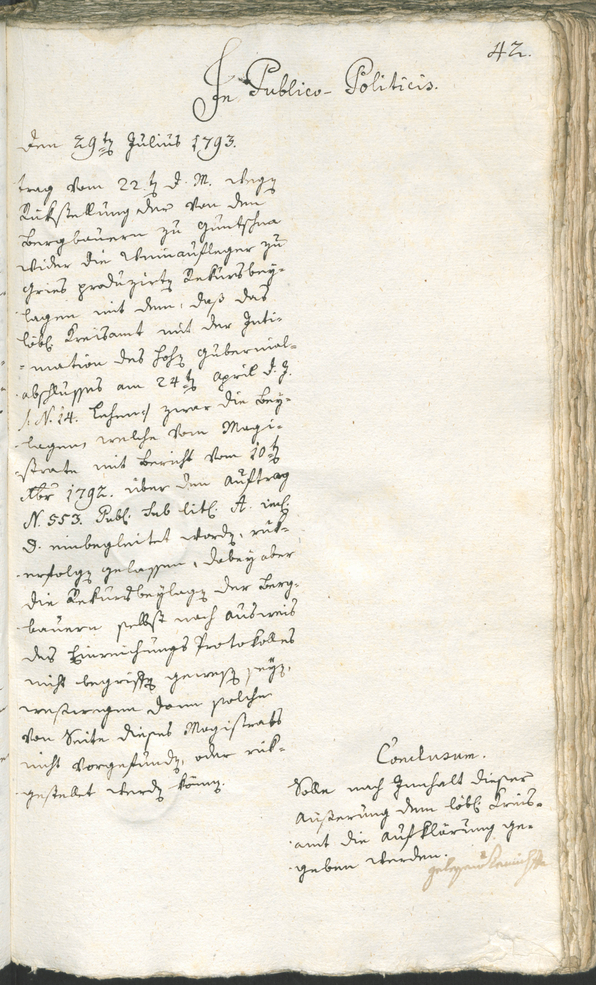 42.
In Publico-Politicis.
Den 29tn Julius 1793.
trag vom 22.tn d. M. wegn
Rükstellung der von den
Bergbauern zu Guntschna
wider die Weinaufleger zu
Gries produzirtn Rekursbey-
lagen mit dem, daß das
löbl. Kreisamt mit der Inti-
mation des hohn Gubernial-
abschlusses am 24tn April d. J.
N. 14. zwar die Bey-
lagen, welche vom Magi-
strate mit Bericht vom 10tn
Xbr 1792. über den Auftrag
N. 553. Publ. sub litt. A. incl.
D. einbegleitet wordn, rük-
erfolgn gelassen, dabey aber
die Rekursbeylagn der Berg-
bauern selbst nach Ausweis
des Einreichungs Protokolles
nicht begriffn gewesn seyn,
weswegen dann solche
von Seite dieses Magistrats
nicht vorgefundn, oder rük-
gestellet werdn könn.
Conclusum.
Solle nach Innhalt dieser
Äußerung dem löbl. Kreis-
amt die Aufklärung ge-
geben werden.